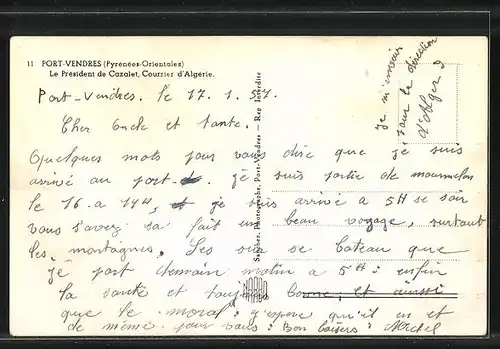 11 PORT-VENDRES (Pyrénées-Orientales)
Le Président de Cazalet, Courrier d'Algérie.
Port-Vendres. le 17. 1. 57.
Cher Oncle et tante.
Quelques mots pour vous dire que je suis
arrivé au port. je suis partie de mourmelon
le 16 a 14H, et je suis arrivé a 5H se soir
vous s'avez sa fait un beau voyage, surtaut
les montagnes. Les sur se bateau que
je part demain matin a 5H: enfin
la santé et toujours bonne, et aussi
que le moral: j'espere qu'il en et
de même pour vous: Bon baisers: Michel
je m'envais
dans la direction
d'Alger
Sanchez, Photographe, Port-Vendres — Rep Interdite